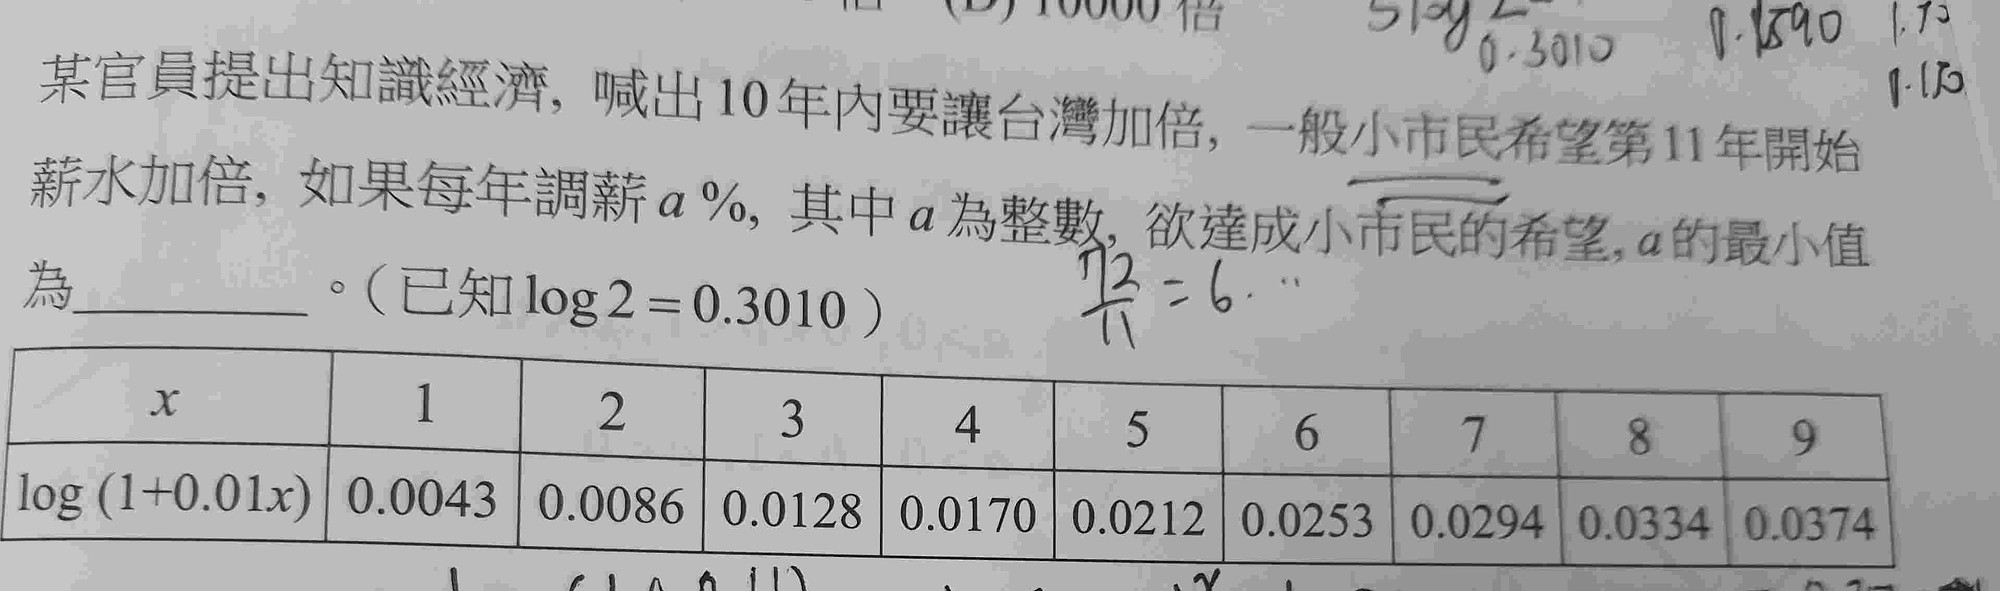 (D) 10000 倍
0.3010
某官員提出知識經濟, 喊出 10 年內要讓台灣加倍, 一般小市民希望第 11 年開始
薪水加倍, 如果每年調薪 a %, 其中 a 為整數, 欲達成小市民的希望, a 的最小值
為________。( 已知 log 2 = 0.3010 )
72/11 = 6...
x 1 2 3 4 5 6 7 8 9
log (1+0.01x) 0.0043 0.0086 0.0128 0.0170 0.0212 0.0253 0.0294 0.0334 0.0374